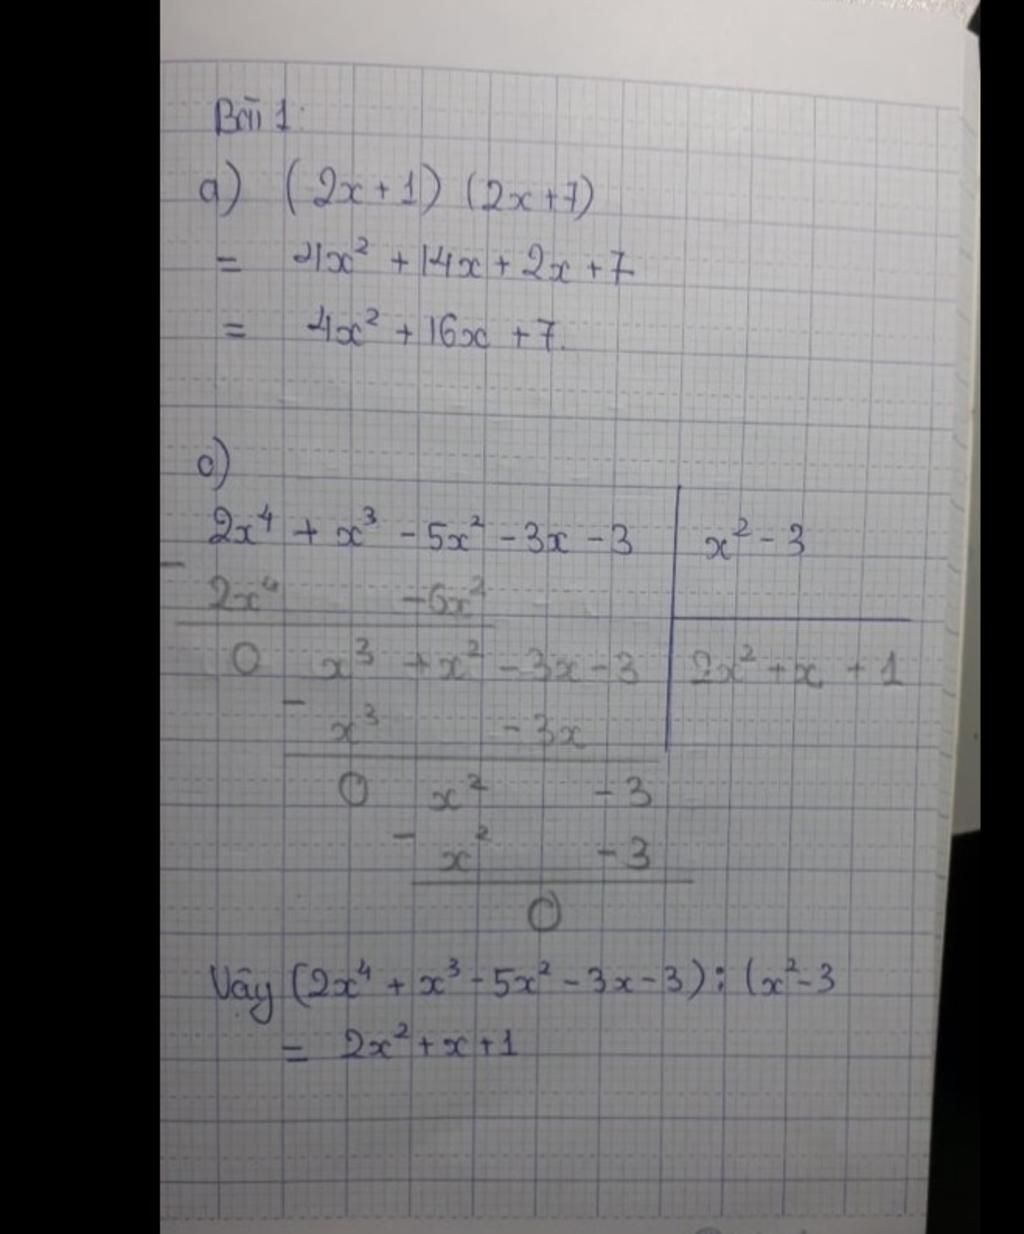 Bài 1:
a) (2x + 1) (2x + 7)
= 4x² + 14x + 2x + 7
= 4x² + 16x + 7.
c)
2x⁴ + x³ - 5x² - 3x - 3 | x² - 3
- 2x⁴ - 6x²
0 x³ + x² - 3x - 3 | 2x² + x + 1
- x³ - 3x
0 x² - 3
- x² - 3
0
Vậy (2x⁴ + x³ - 5x² - 3x - 3) : (x² - 3
= 2x² + x + 1